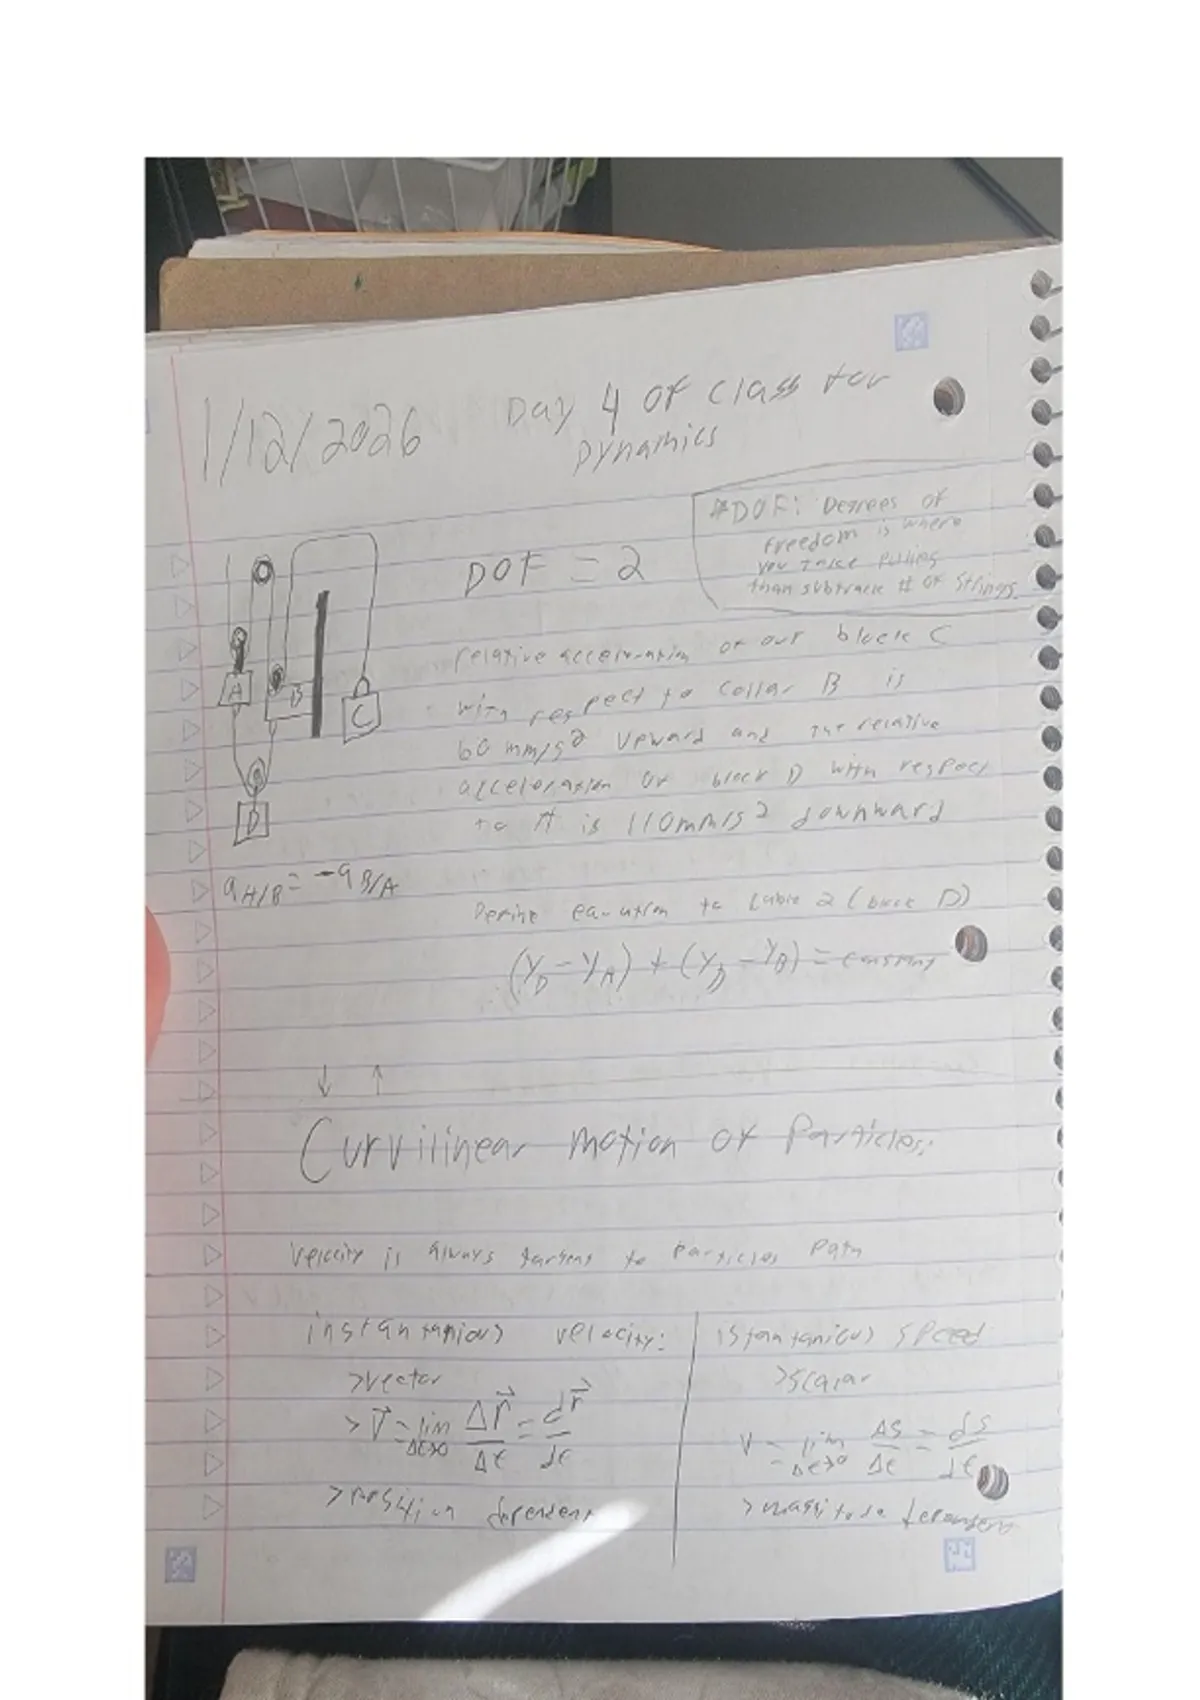 1/12/2026
Day 4 of class for
Dynamics
#DOF: Degrees of
freedom is where
you take pullies
than subtrack # of strings
DOF = 2
relative acceleration of our block C
with respect to collar B is
60 mm/s² upward and the relative
acceleration of block D with respect
to A is 110mm/s² downward
A
B
C
D
a A/B = -a B/A
Define equation to cable 2 (block D)
(Y_D - Y_A) + (Y_D - Y_B) = constant
↓ ↑
Curvilinear motion of Particles:
Velocity is always tangent to particles path
instantanious velocity:
>vector
> V⃗ = lim Δt→0 Δr⃗/Δt = dr⃗/dt
>position dependent
istantanious speed
>scalar
V = lim Δt→0 ΔS/Δt = dS/dt
>